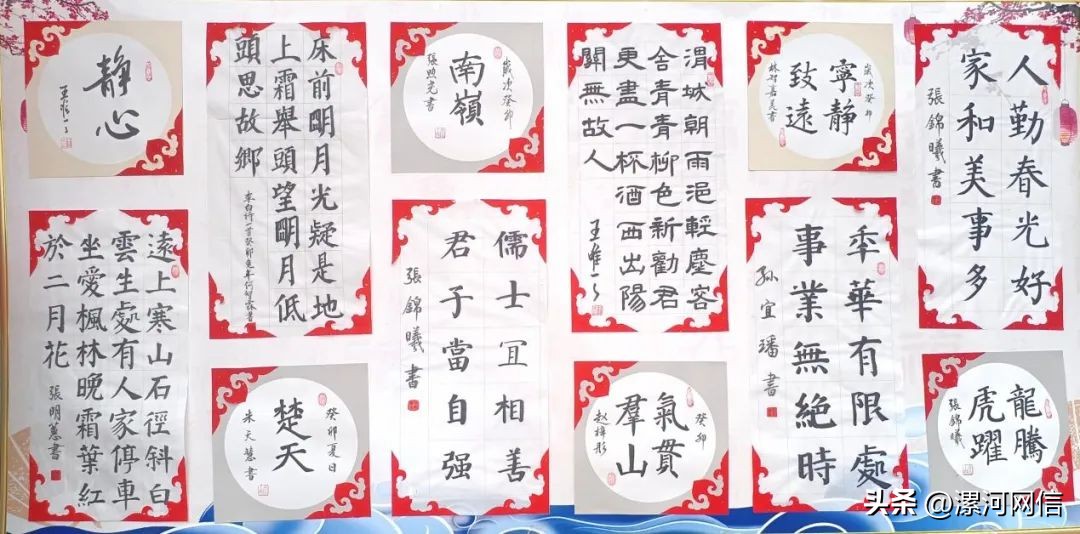 靜心
床前明月光疑是地
上霜舉頭望明月低
頭思故鄉
歲次癸卯
南嶺
張照光書
渭城朝雨浥輕塵客
舍青青柳色新勸君
更盡一杯酒西出陽
關無故人
歲次癸卯
寧静
致遠
人勤春光好
家和美事多
張錦曦書
遠上寒山石徑斜白
雲生處有人家停車
坐愛楓林晚霜葉紅
於二月花
張明慧書
癸卯夏日
楚天
朱天慧書
儒士宜相善
君子當自强
張錦曦書
癸卯
氣貫
羣山
赵梓彤
年華有限處
事業無絕時
孫宜璠書
龍騰
虎躍
張錦曦
头条 @漯河网信